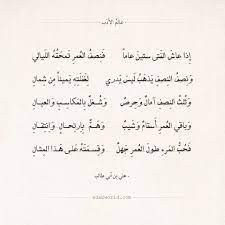 عالم الأدب
إذا عاش الفتى ستين عاماً فنصف العمر تمحقه الليالي
ونصف النصف يذهب ليس يدري لغفلته يميناً من شمال
وثلث النصف آمال وحرص وشغل بالمكاسب والعيال
وباقي العمر أسقام وشيب وهم بارتحال وانتقال
فحب المرء طول العمر جهل وقسمته على هذا المثال
- علي بن أبي طالب